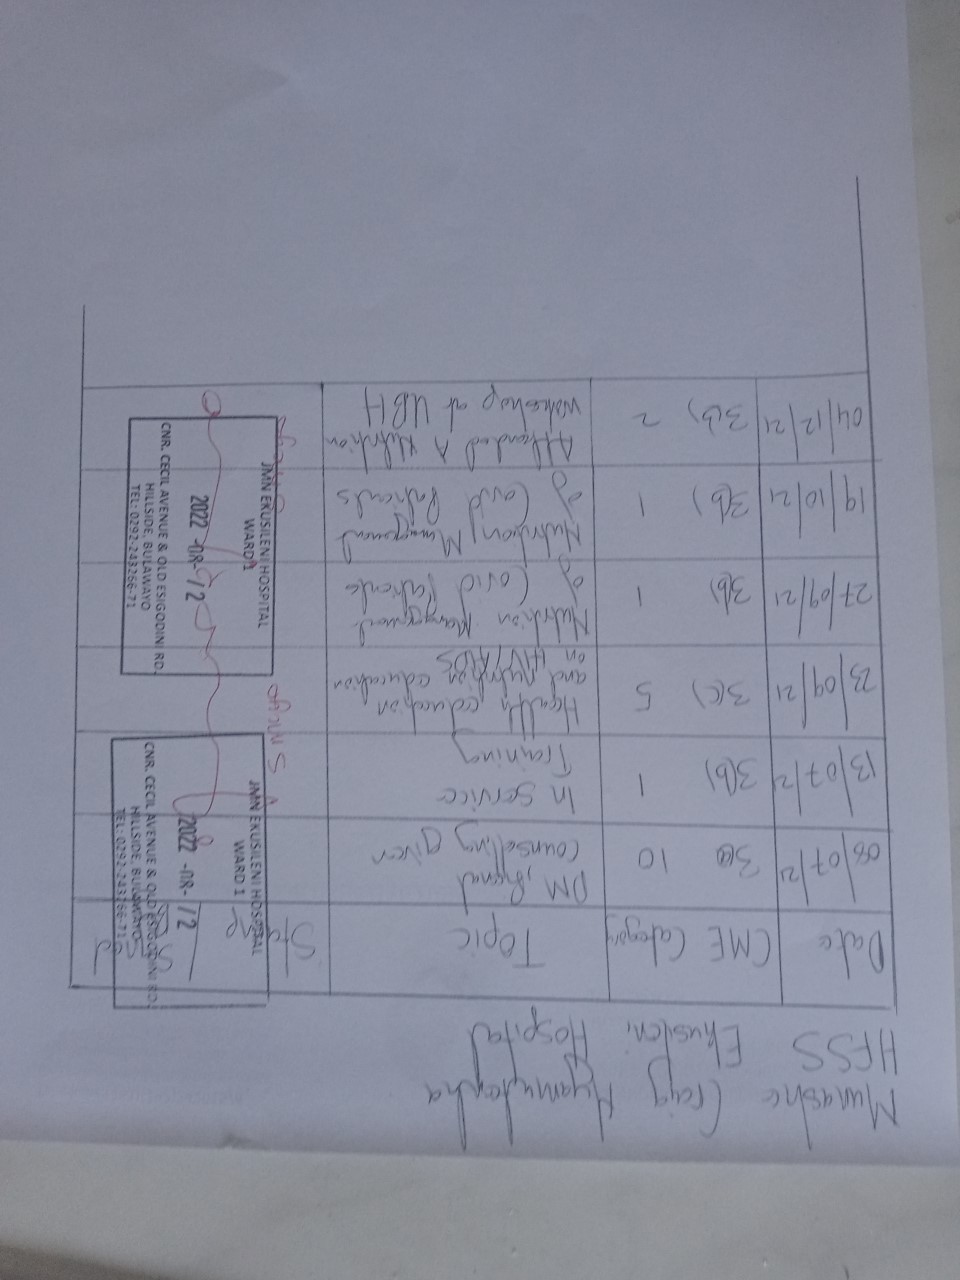 Munashe Craig Nyamukapha
HFSS Ekusileni Hospital
Date CME Category Topic
08/07/21 10 DM, Renal
counselling given
13/07/21 3(b) 1 In Service
Training
23/09/21 3(c) 5 Health education
and nutrition education
on HIV/AIDS
27/09/21 3(b) 1 Nutrition Management
of Covid Patients
19/10/21 3(b) 1 Nutrition Management
of Covid Patients
04/12/21 3(b) 2 Attended A Nutrition
Workshop at UBH
JMN EKUSILENI HOSPITAL
WARD 1
2022 -12
CNR. CECIL AVENUE & OLD ESIGODINI RD.
HILLSIDE, BULAWAYO
TEL: 0292-243266-71
JMN EKUSILENI HOSPITAL
WARD 1
2022 -12
CNR. CECIL AVENUE & OLD ESIGODINI RD.
HILLSIDE, BULAWAYO
TEL: 0292-243266-71